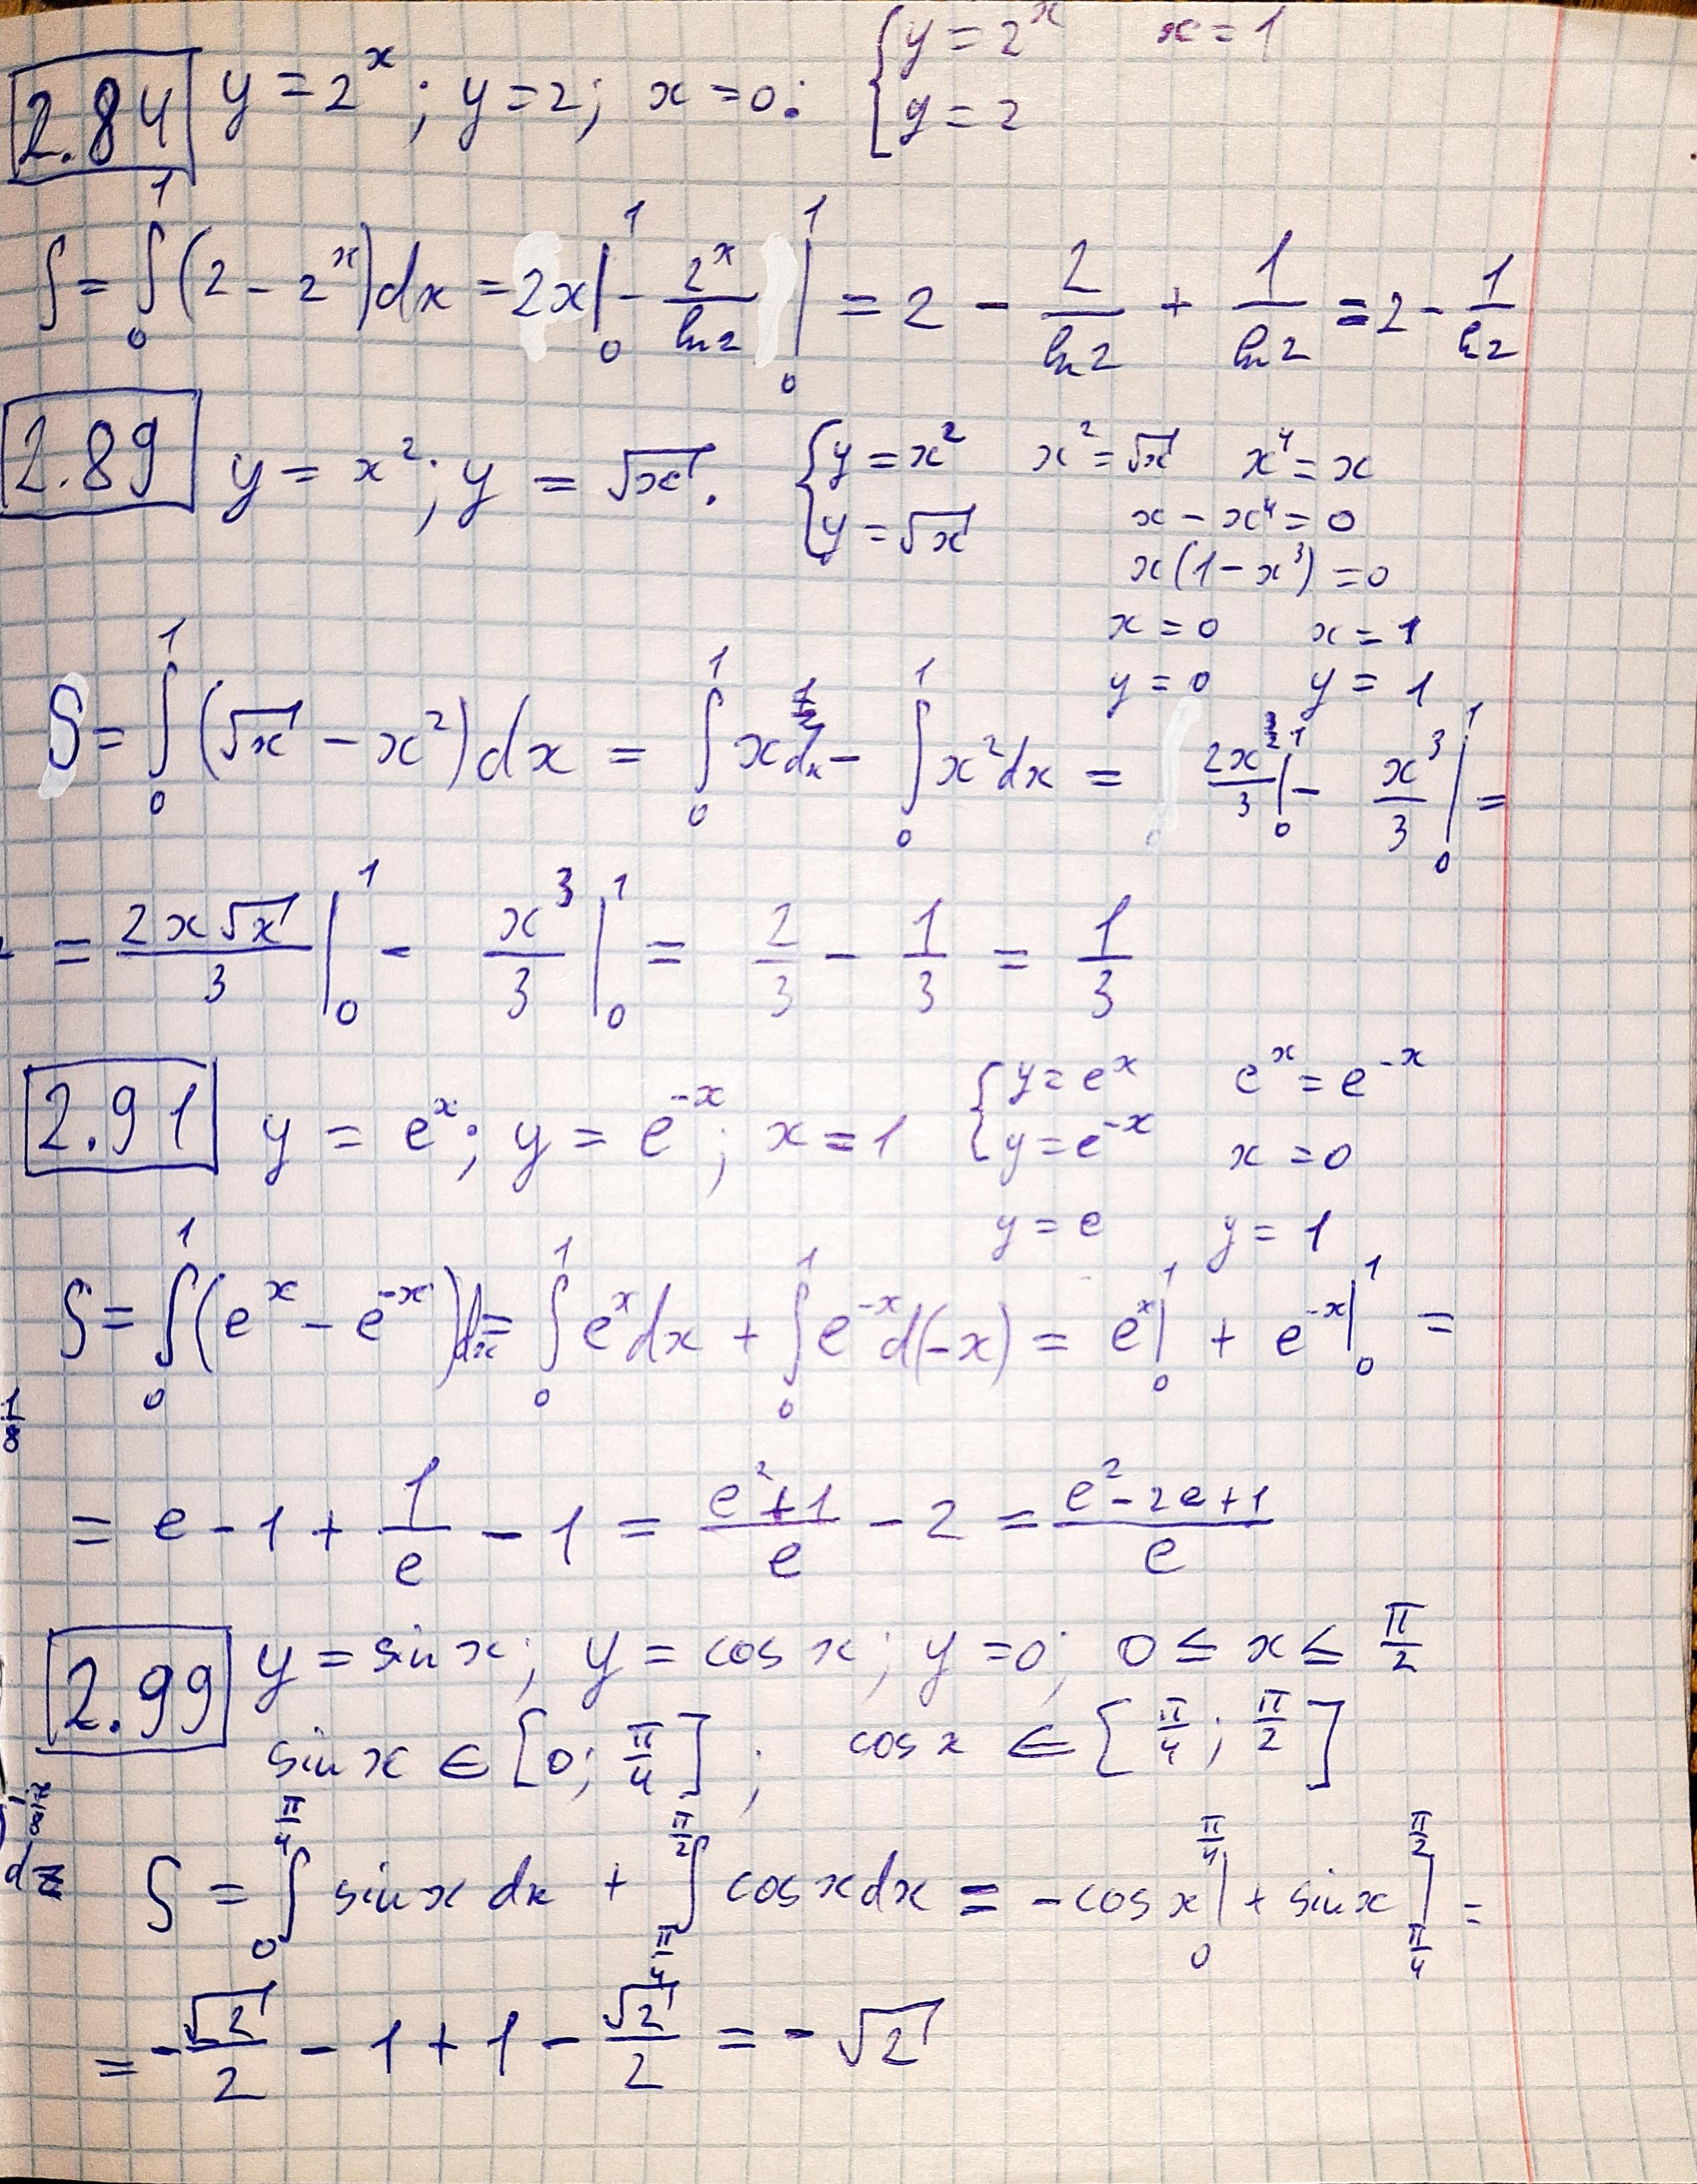 2.84 y = 2^x ; y = 2; x = 0: { y = 2^x x = 1
y = 2
S = ∫₀¹ (2 - 2^x) dx = 2x |₀¹ - 2^x/ln2 |₀¹ = 2 - 2/ln2 + 1/ln2 = 2 - 1/ln2
2.89 y = x²; y = √x. { y = x² x² = √x x⁴ = x
y = √x x - x⁴ = 0
x(1 - x³) = 0
x = 0 x = 1
y = 0 y = 1
S = ∫₀¹ (√x - x²) dx = ∫₀¹ x^(1/2) dx - ∫₀¹ x² dx = 2x^(3/2)/3 |₀¹ - x³/3 |₀¹ =
= 2x√x/3 |₀¹ - x³/3 |₀¹ = 2/3 - 1/3 = 1/3
2.91 y = e^x; y = e^(-x); x = 1 { y = e^x e^x = e^(-x)
y = e^(-x) x = 0
y = e y = 1
S = ∫₀¹ (e^x - e^(-x)) dx = ∫₀¹ e^x dx + ∫₀¹ e^(-x) d(-x) = e^x |₀¹ + e^(-x) |₀¹ =
1/8
= e - 1 + 1/e - 1 = (e² + 1)/e - 2 = (e² - 2e + 1)/e
2.99 y = sin x; y = cos x; y = 0; 0 ≤ x ≤ π/2
sin x ∈ [0; π/4]; cos x ∈ [π/4; π/2]
dz S = ∫₀^(π/4) sin x dx + ∫_(π/4)^(π/2) cos x dx = -cos x |₀^(π/4) + sin x |_(π/4)^(π/2) =
= -√2/2 - 1 + 1 - √2/2 = -√2